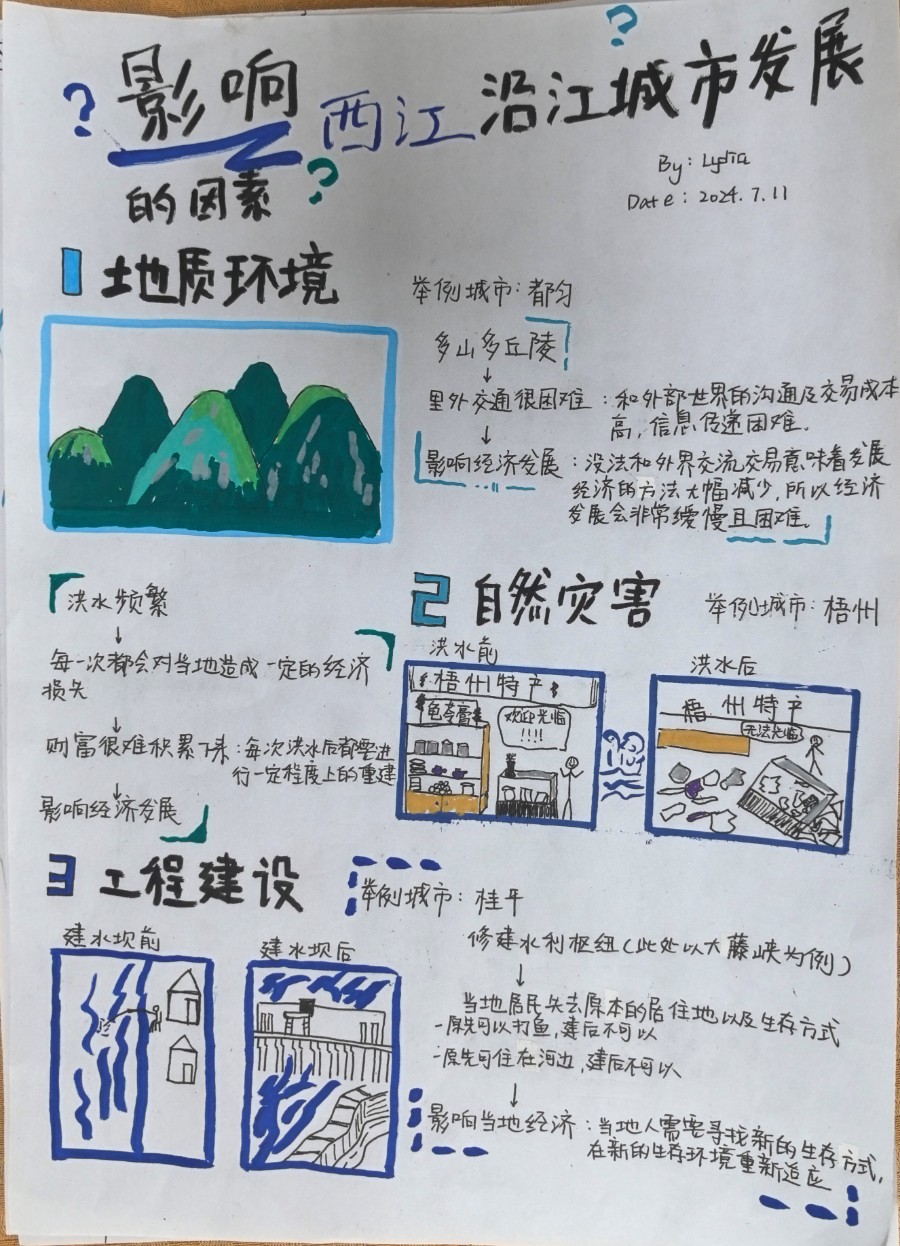 影响西江沿江城市发展
的因素
By: Lydia
Date: 2024.7.11
1 地质环境
举例城市: 都匀
多山多丘陵
↓
里外交通很困难: 和外部世界的沟通及交易成本
高, 信息传递困难.
↓
影响经济发展: 没法和外界交流交易意味着发展
经济的方法大幅减少, 所以经济
发展会非常缓慢且困难.
2 自然灾害
举例城市: 梧州
洪水频繁
↓
每一次都会对当地造成一定的经济
损失
↓
财富很难积累下来: 每次洪水后都要进
行一定程度上的重建
↓
影响经济发展
洪水前
梧州特产
龟苓膏
欢迎光临
!!!!
洪水后
梧州特产
无法光临
3 工程建设
举例城市: 桂平
建水坝前
建水坝后
修建水利枢纽(此处以大藤峡为例)
↓
当地居民失去原本的居住地以及生存方式
-原先可以打鱼, 建后不可以
-原先可住在河边, 建后不可以
↓
影响当地经济: 当地人需要寻找新的生存方式,
在新的生存环境重新适应